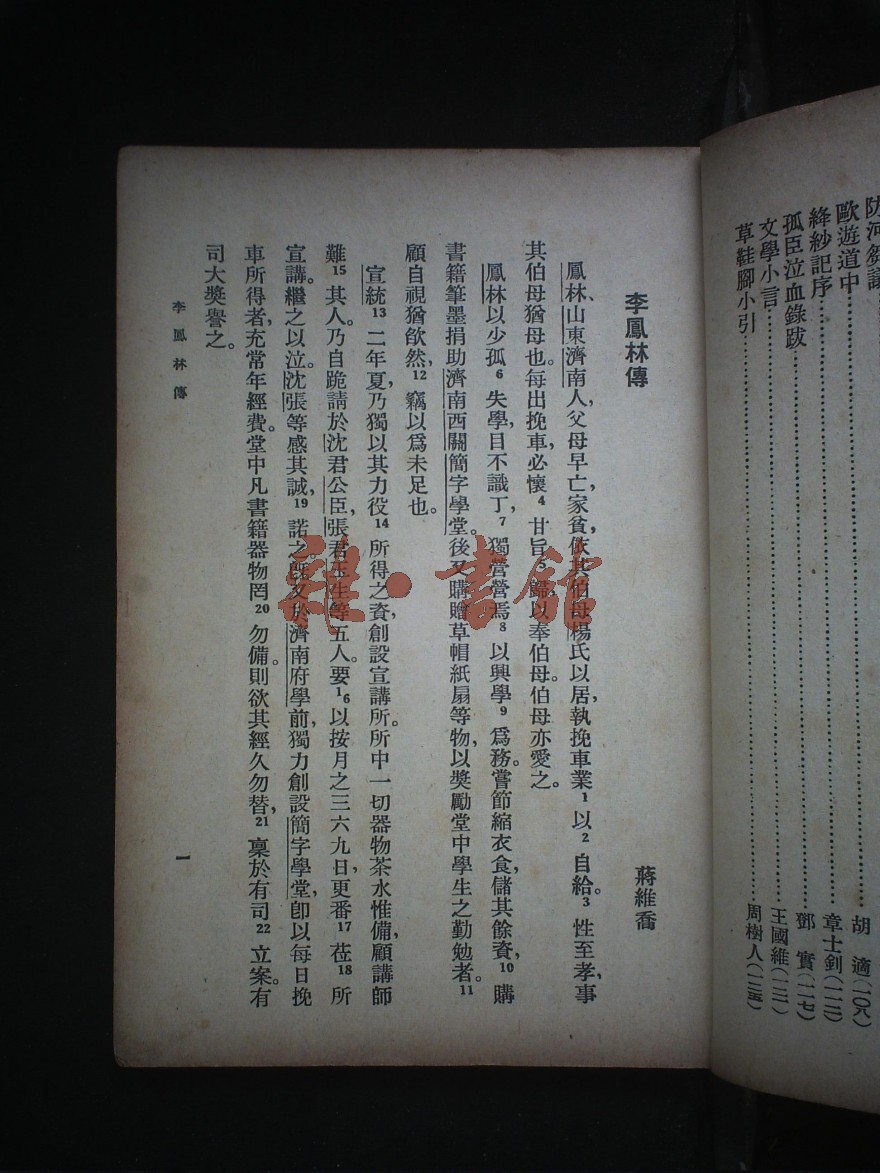 防河芻議 胡適(一〇八)
歐遊道中
絳紗記序 章士釗(一一二)
孤臣泣血錄跋 鄧實(一一七)
文學小言 王國維(一二一)
草鞋腳小引 周樹人(一三五)
李鳳林傳 蔣維喬
鳳林、山東濟南人，父母早亡，家貧，依其伯母楊氏以居，執挽車業1以2自給。3性至孝，事
其伯母猶母也。每出挽車，必懷4甘旨5歸以奉伯母。伯母亦愛之。
鳳林以少孤6失學，目不識丁，7獨營營焉8以興學9爲務。嘗節縮衣食，儲其餘資，10購
書籍筆墨捐助濟南西關簡字學堂。後又購贈草帽紙扇等物，以獎勵堂中學生之勤勉者。11
顧自視猶欿然，12竊以爲未足也。
宣統13二年夏，乃獨以其力役14所得之資，創設宣講所。所中一切器物茶水惟備，顧講師
難15其人。乃自跪請於沈君公臣，張君玉生等五人。要16以按月之三六九日，更番17莅18所
宣講。繼之以泣。沈張等感其誠，19諾之。既又於濟南府學前，獨力創設簡字學堂，即以每日挽
車所得者，充常年經費。堂中凡書籍器物罔20勿備。則欲其經久勿替，21稟於有司22立案。有
司大獎譽之。
李鳳林傳
一
雜·書館